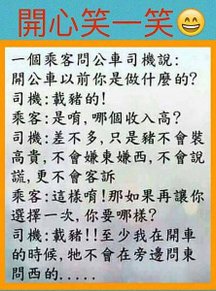 開心笑一笑😄
一個乘客問公車司機說:
開公車以前你是做什麼的?
司機:載豬的!
乘客:是唷,哪個收入高?
司機:差不多,只是豬不會裝
高貴,不會嫌東嫌西,不會說
謊,更不會客訴
乘客:這樣唷!那如果再讓你
選擇一次,你要哪樣?
司機:載豬!!至少我在開車
的時候,牠不會在旁邊問東
問西的.....